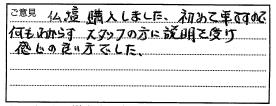 ご意見 仏壇購入しました、初めて事ですので
何もわからず スタッフの方に説明を受け
感じの良い方でした。